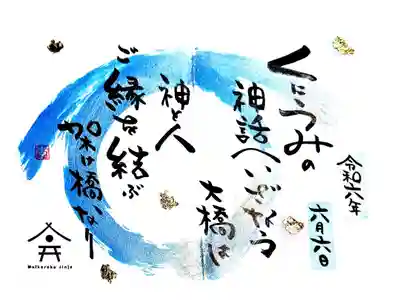 くにうみの
神話へいざなう
大橋は
神と人
ご縁を結ぶ
架け橋なり
令和六年
六月六日